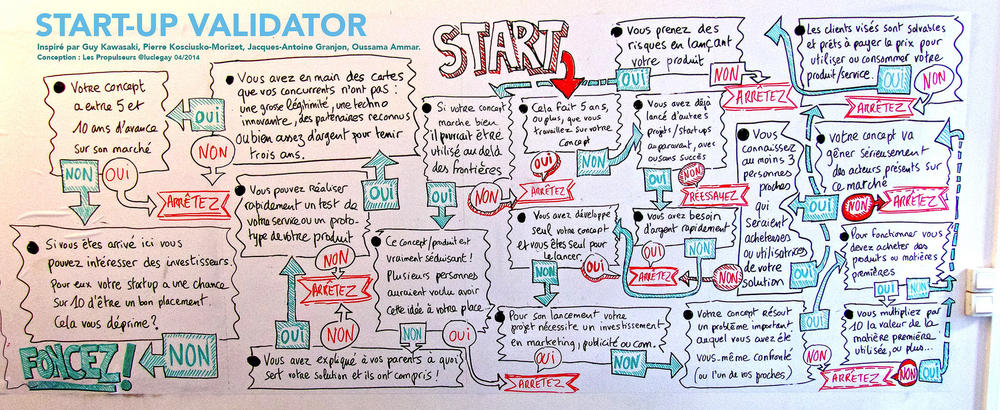 START-UP VALIDATOR
Inspiré par Guy Kawasaki, Pierre Kosciusko-Morizet, Jacques-Antoine Granjon, Oussama Ammar.
Conception : Les Propulseurs @luclegay 04/2014
START
Cela fait 5 ans,
ou plus, que vous
travaillez sur votre
concept
OUI
ARRÊTEZ
NON
Vous avez déjà
lancé d'autres
projets/startups
auparavant, avec
ou sans succès
NON
RÉESSAYEZ
OUI
Vous avez besoin
d'argent rapidement
OUI
ARRÊTEZ
NON
Vous avez développé
seul votre concept
et vous êtes seul pour
le lancer.
OUI
NON
NON
Pour son lancement votre
projet nécessite un investissement
en marketing, publicité ou com.
OUI
ARRÊTEZ
NON
Votre concept résout
un problème important
auquel vous avez été
vous-même confronté
(ou l'un de vos proches)
OUI
NON
ARRÊTEZ
Vous
connaissez
au moins 3
personnes
proches
qui
seraient
acheteuses
ou utilisatrices
de votre
solution
OUI
Vous multipliez par
10 la valeur de la
matière première
utilisée, ou plus...
NON
OUI
Pour fonctionner vous
devez acheter des
produits ou matières
premières
OUI
NON
votre concept va
gêner sérieusement
des acteurs présents sur
ce marché
NON
ARRÊTEZ
OUI
Les clients visés sont solvables
et prêts à payer le prix pour
utiliser ou consommer votre
produit/service.
OUI
NON
ARRÊTEZ
Vous prenez des
risques en lançant
votre produit
OUI
NON
ARRÊTEZ
Si votre concept
marche bien
il pourrait être
utilisé au delà
des frontières
NON
OUI
Ce concept/produit est
vraiment séduisant !
Plusieurs personnes
auraient voulu avoir
cette idée à votre place.
NON
OUI
ARRÊTEZ
Vous avez expliqué à vos parents à quoi
sert votre solution et ils ont compris !
NON
OUI
ARRÊTEZ
Vous pouvez réaliser
rapidement un test de
votre service ou un proto-
type de votre produit
NON
OUI
Vous avez en main des cartes
que vos concurrents n'ont pas :
une grosse légitimité, une techno
innovante, des partenaires reconnus
ou bien assez d'argent pour tenir
trois ans.
OUI
NON
ARRÊTEZ
Votre concept
a entre 5 et
10 ans d'avance
sur son marché
NON
OUI
Si vous êtes arrivé ici vous
pouvez intéresser des investisseurs.
Pour eux votre startup a une chance
sur 10 d'être un bon placement.
Cela vous déprime ?
NON
FONCEZ !